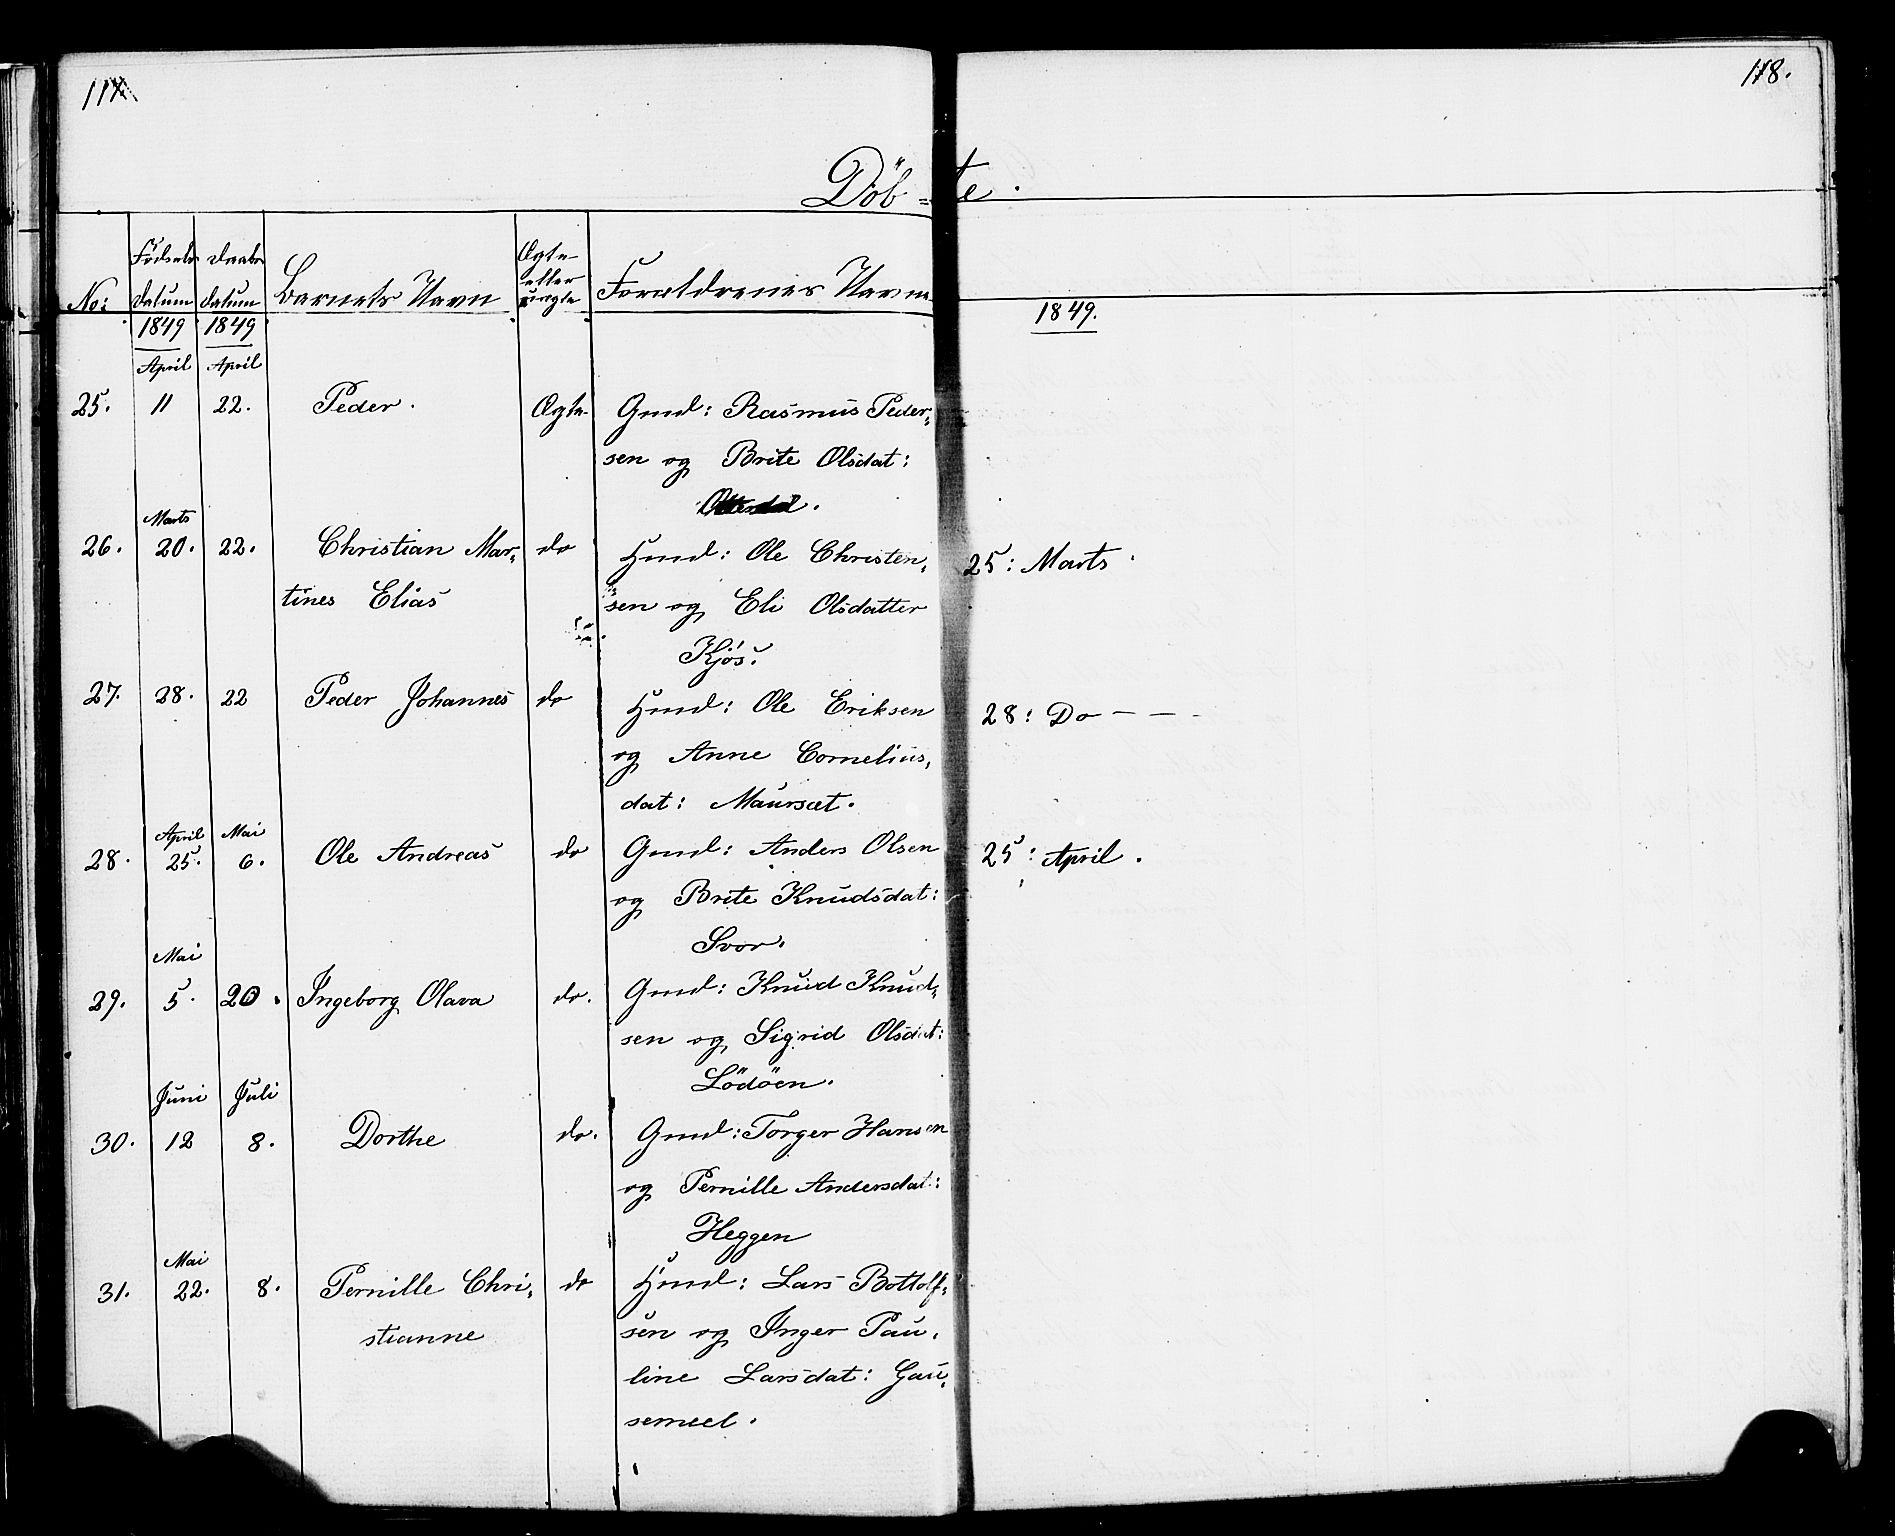 118.
Döb-te.
No: Fødsels Datum Daabs Datum Barnets Navn Ægte eller uægte Forældrenes Navne
1849 1849 1849.
April April
25. 11 22. Peder. Ægte Gmd: Rasmus Peder-
sen og Brite Olsdat:
Marts
26. 20. 22. Christian Mar- do Hmd: Ole Christen- 25: Marts
tines Elias sen og Eli Olsdatter
Kjös.
27. 28. 22 Peder Johannes do Hmd: Ole Eriksen 28: Do - - -
og Anne Cornelius-
dat: Maursæt.
April Mai
28. 25. 6. Ole Andreas do Gmd: Anders Olsen 25: April.
og Brite Knudsdat:
Svor.
Mai
29. 5. 20. Ingeborg Olava do. Gmd: Knud Knud-
sen og Sigrid Olsdat:
Lödöen.
Juni Juli
30. 12 8. Dorthe do. Gmd: Torger Hansen
og Pernille Andersdat:
Heggen
Mai
31. 22. 8. Pernille Chri- do Hmd: Lars Bottolf-
stianne sen og Inger Pau-
line Larsdat: Gau-
semeel.